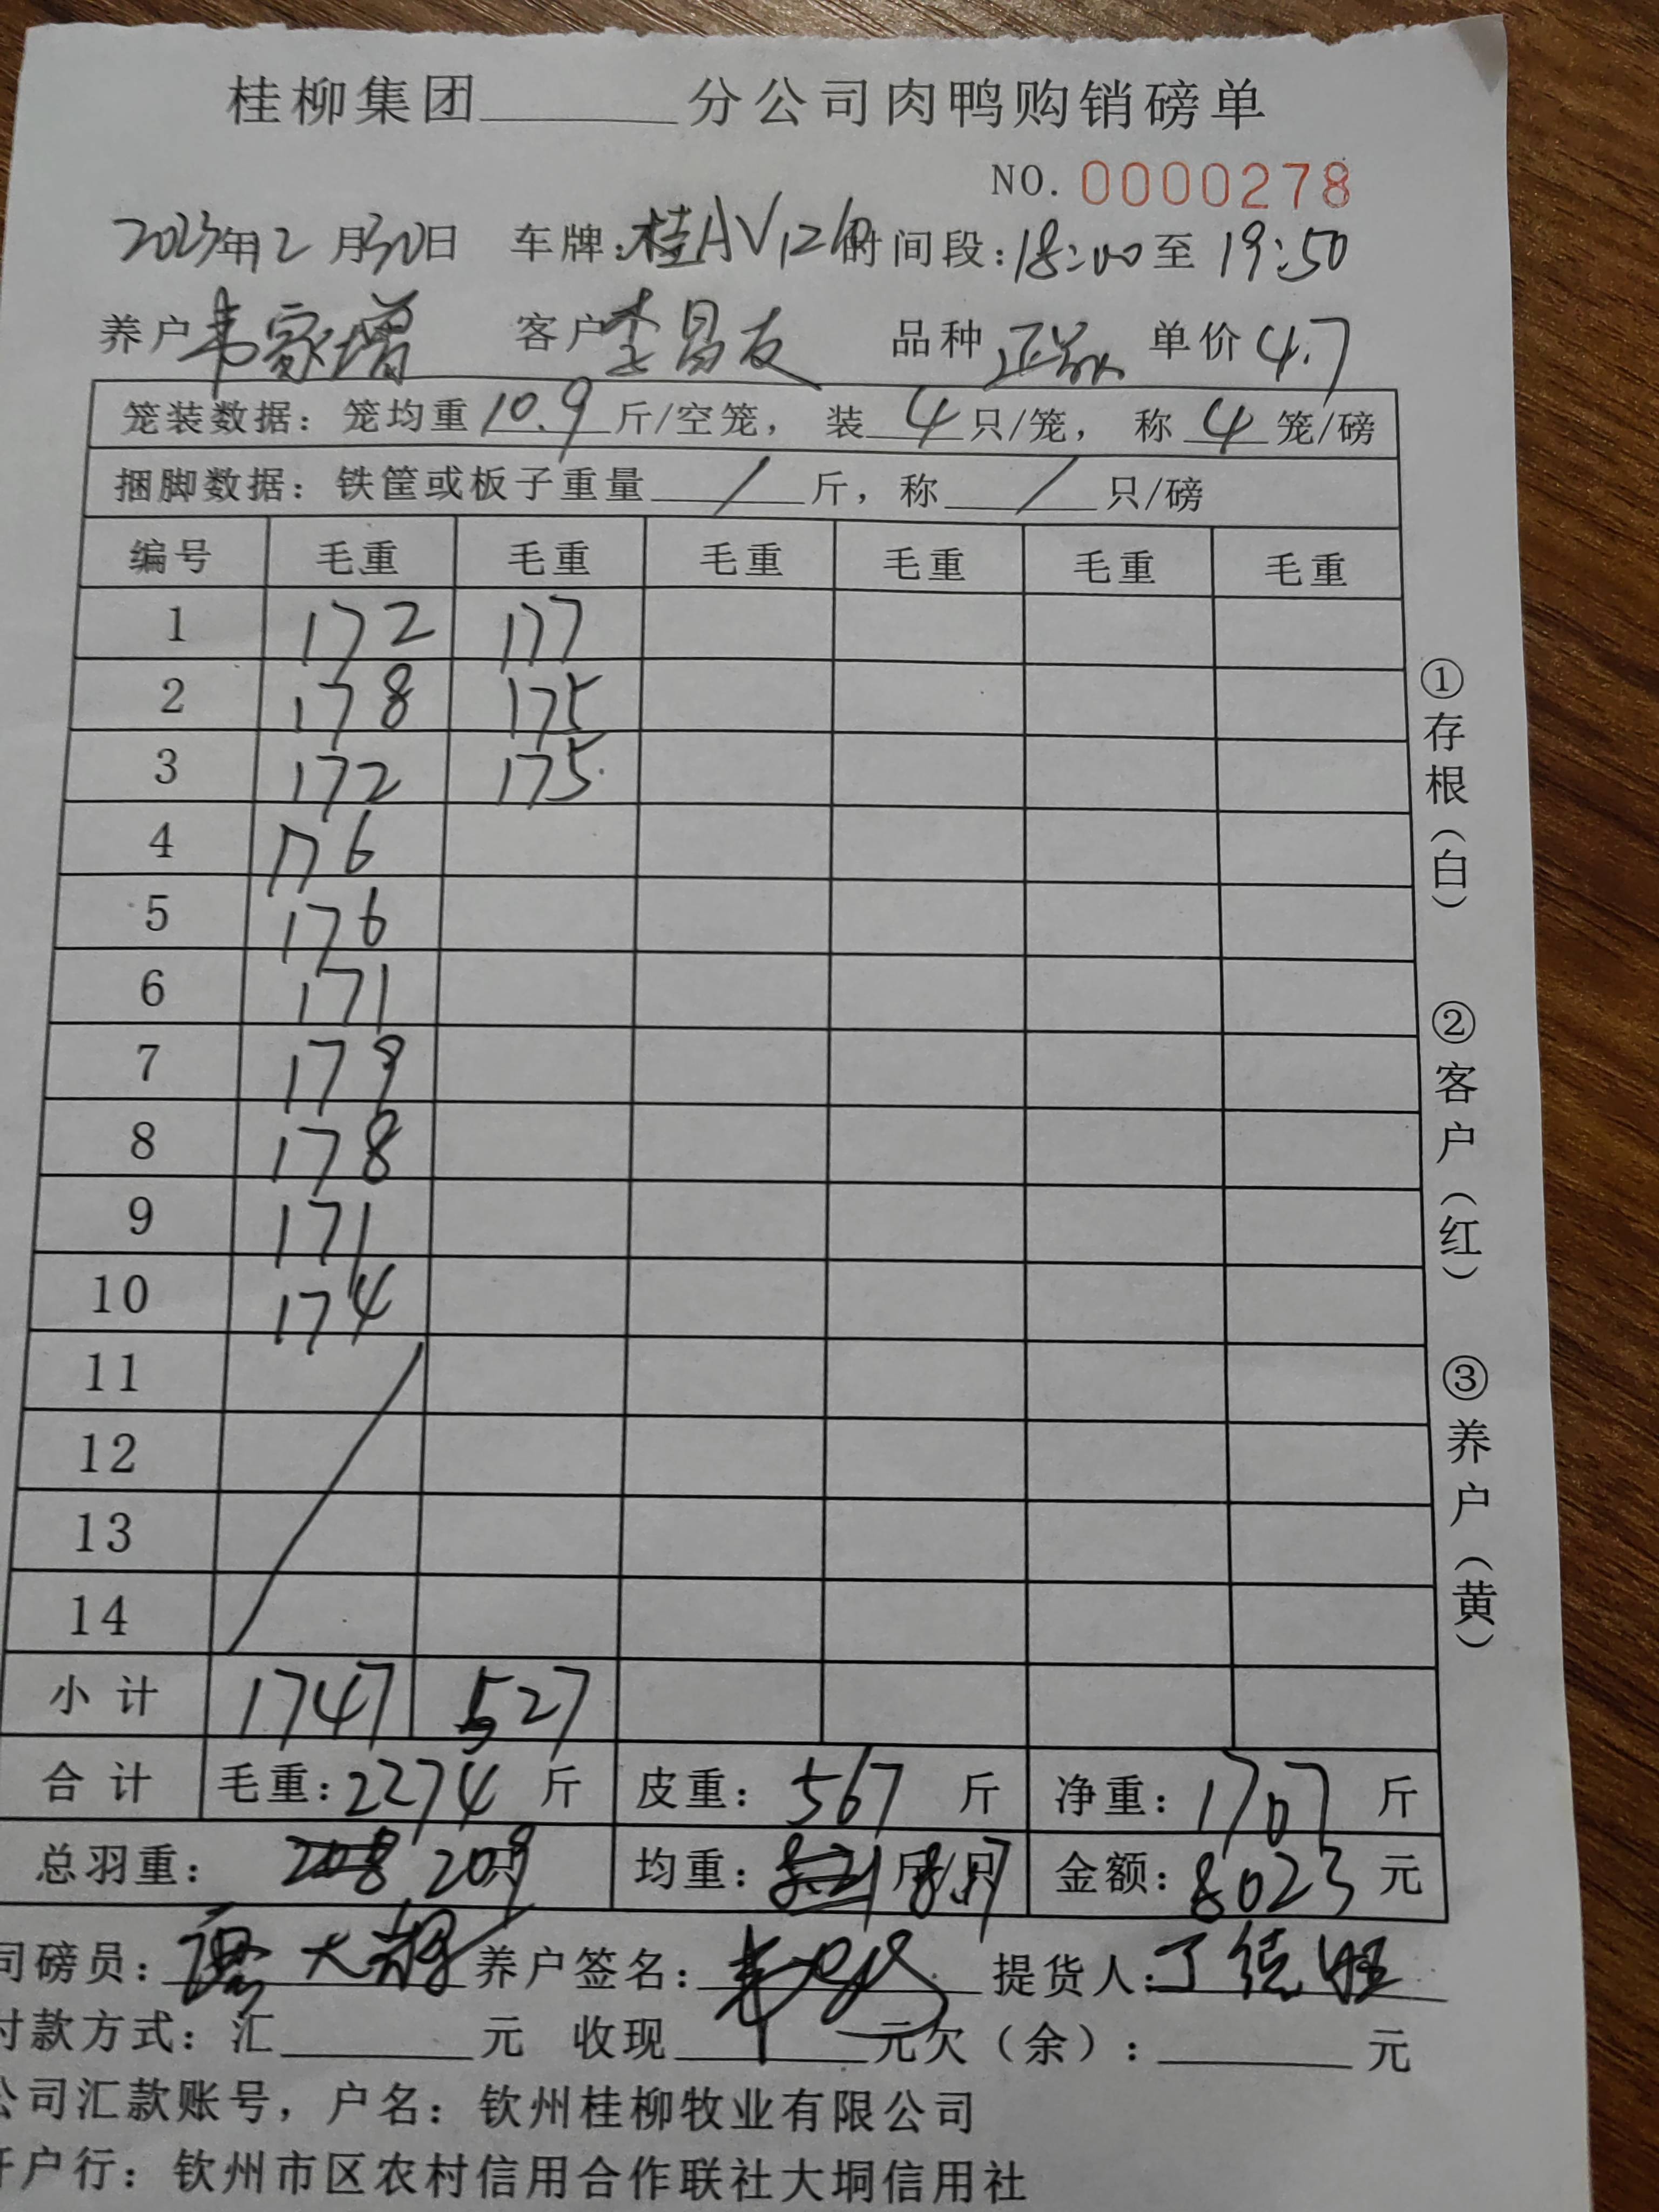 桂柳集团______分公司肉鸭购销磅单
NO. 0000278
2023年2月30日 车牌:桂AV12 时间段:18:00至19:50
养户韦家增 客户李昌友 品种 单价4.7
笼装数据:笼均重10.9斤/空笼,装4只/笼,称4笼/磅
捆脚数据:铁筐或板子重量/斤,称/只/磅
编号 毛重 毛重 毛重 毛重 毛重 毛重
1 172 177
2 178 175
3 172 175
4 176
5 176
6 171
7 179
8 178
9 171
10 174
11
12
13
14
小计 1747 527
合计 毛重:2274斤 皮重:567斤 净重:1707斤
总羽重:208 209 均重:8.21 8.17 金额:8023元
司磅员: 养户签名: 提货人:
付款方式:汇______元 收现______元欠(余):______元
公司汇款账号,户名:钦州桂柳牧业有限公司
开户行:钦州市区农村信用合作联社大垌信用社
①存根(白) ②客户(红) ③养户(黄)